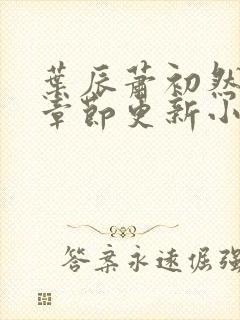 葉辰蕭初然
章節更新小
答案永遠倔強